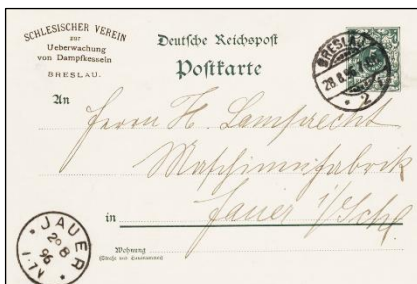 SCHLESISCHER VEREIN
zur
Ueberwachung
von Dampfkesseln
BRESLAU.
Deutsche Reichspost
Postkarte
BRESLAU
28.8.96
* 2
An
Herrn H. Lamprecht
Maschinenfabrik
in Jauer i/Schl.
Wohnung
(Straße und Hausnummer)
* JAUER *
8
96
1-7V